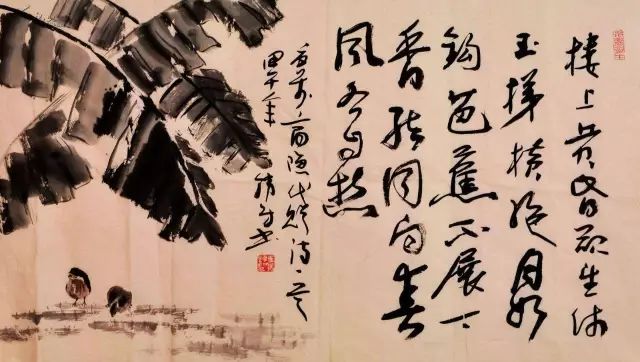 樓上黄昏欲望休
玉梯横绝月如
钩芭蕉不展丁
香结同向春
风各自愁
商隐代赠诗一首
甲午年
书